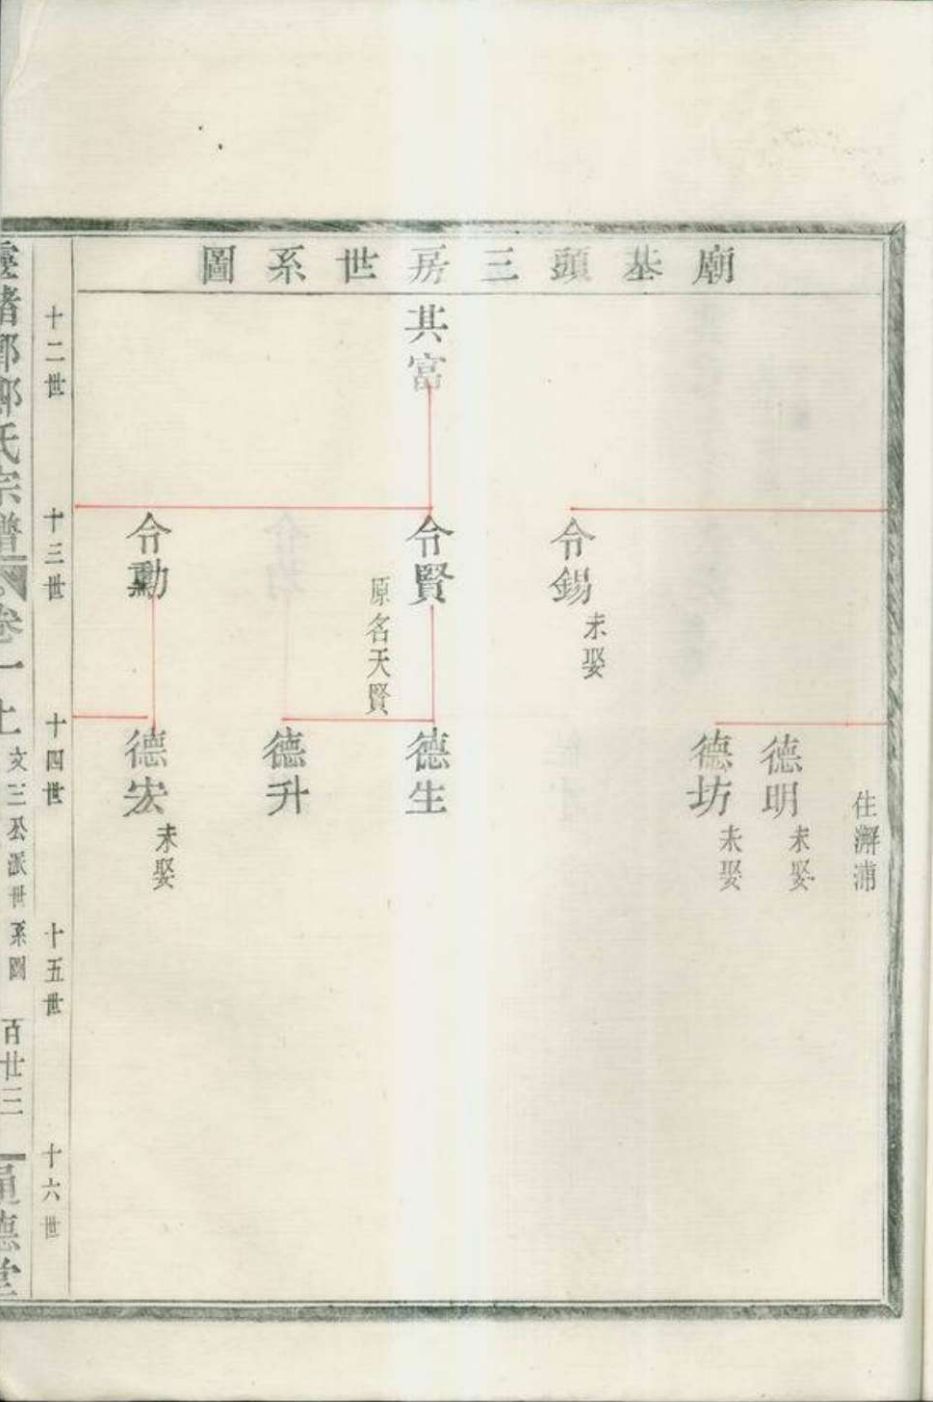 廟基頭三房世系圖
住澥浦
德明
未娶
德坊
未娶
令錫
未娶
其富
令賢
原名天賢
德生
德升
令勳
德宏
未娶
十二世
十三世
十四世
十五世
十六世
鄭氏宗譜
卷一上
文三公派世系圖
百廿三
德堂